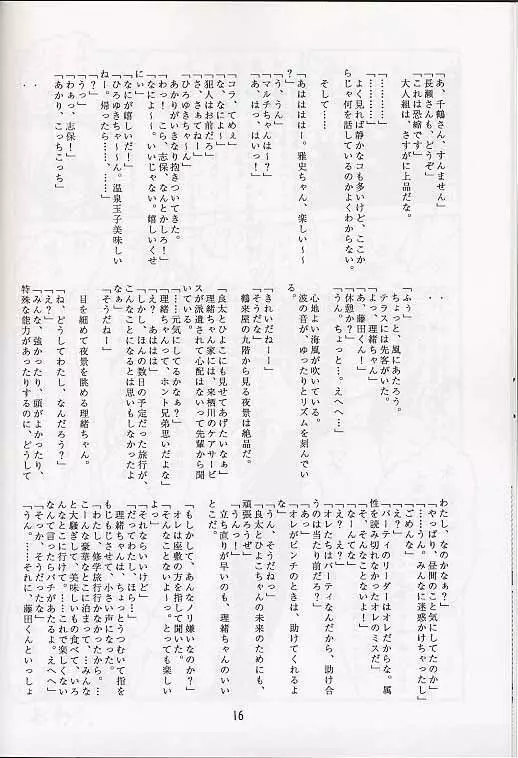 「あ、千鶴さん、すんません」
「長瀬さんも、どうぞ」
「これは恐縮です」
大人組は、さすがに上品だな。
「…………」
「…………」
よく見れば静かなコも多いけど、ここか
らじゃ何を話しているのかよくわからない。
そして……
「あはははー。雅史ちゃん、楽しい〜
?」
「う、うん」
「マルチちゃんは〜?」
「あ、はっ、はいっ!」
「コラ、てめえ」
「な、なによ〜」
「犯人はお前だろ」
「さ、さぁてねー!」
「ひろゆきちゃ〜ん」
あかりがいきなり抱きついてきた。
「わっ! こら、志保、なんとかしろ!」
「なによ〜、いいじゃない。嬉しいくせ
にぃ」
「なにが嬉しいだ!」
「ひろゆきちゃ〜〜ん。温泉玉子美味しい
ねー。帰ったら……、……」
「?」
「うっ」
「わぁっ、志保!」
「あかり、こっちこっち」
・・
・・
「ふぅ」
ちょっと、風にあたろう。
テラスには先客がいた。
「よっ、理緒ちゃん」
「あ、藤田くん!」
「休憩か?」
「うん。ちょっと…。えへへ…」
心地よい海風が吹いている。
波の音が、ゆったりとリズムを刻んでい
る。
「きれいだねーー」
「そうだな」
鶴来屋の九階から見る夜景は絶品だ。
「良太とひよこにも見せてあげたいなぁ」
理緒ちゃん家には、来栖川のケアサービ
スが派遣されて心配はないって先輩から聞
いている。
「……元気にしてるかなぁ?」
「理緒ちゃんって、ホント兄弟思いだよな」
「え? あははは」
「しかし、ほんの数日の予定だった旅行が、
こんなことになるとは思いもしなかったよ
なぁ」
「そうだねー」
目を細めて夜景を眺める理緒ちゃん。
「ね、どうしてわたし、なんだろう?」
「え?」
「みんな、強かったり、頭がよかったり、
特殊な能力があったりするのに、どうして
わたし、なのかなぁ?」
「やっぱり、昼間のこと気にしてたのか」
「……うん。みんなに迷惑かけちゃったし」
「ごめんな」
「え?」
「パーティのリーダーはオレだからな。属
性を読み切れなかったオレのミスだ」
「そ、そんなことないよ!」
「なーんてな」
「え? え?」
「オレたちはパーティなんだから、助け合
うのは当たり前だろ?」
「あっ」
「オレがピンチのときは、助けてくれるよ
な」
「うん、そうだねっ」
「良太とひよこちゃんの未来のためにも、
頑張ろうぜ」
「うんっ!」
立ち直りが早いのも、理緒ちゃんのいい
とこだ。
「もしかして、あんなノリ嫌いなのか?」
オレは座敷の方を指して聞いた。
「そんなことないよーっ。とっても楽しい
よ」
「それならいいけど」
「だってわたし、ほら…」
理緒ちゃんは、ちょっとうつむいて指を
もじもじさせて、小さい声になった。
「わたし、修学旅行行かなかったから。…
こーんな豪華なとこに泊まって、…みんな
と大騒ぎして、美味しいもの食べて、いろ
んなとこに行けて。……これで楽しくない
なんて言ったらバチがあたるよ。えへへ」
「そっか、そうだったな」
「うん。……それに、藤田くんといっしょ
16